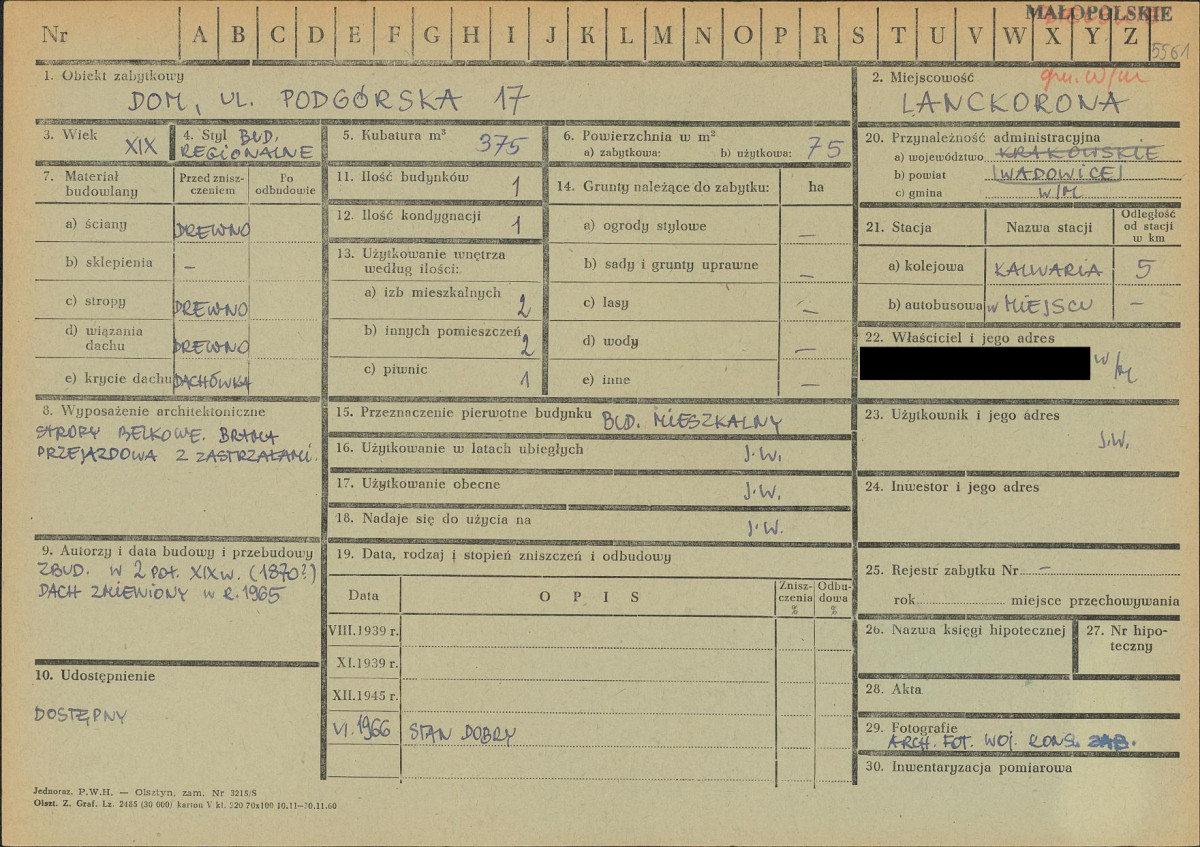 MAŁOPOLSKIE
Nr A B C D E F G H I J K L M N O P R S T U V W X Y Z
5561
1. Obiekt zabytkowy
DOM, UL. PODGÓRSKA 17
2. Miejscowość
gm. w/m
LANCKORONA
3. Wiek
XIX
4. Styl BUD.
REGIONALNE
5. Kubatura m³ 375
6. Powierzchnia w m²
a) zabytkowa: b) użytkowa: 75
20. Przynależność administracyjna
a) województwo KRAKOWSKIE
b) powiat WADOWICE
c) gmina W/M
7. Materiał budowlany
Przed znisz-
czeniem
Po
odbudowie
a) ściany DREWNO
b) sklepienia –
c) stropy DREWNO
d) wiązania
dachu DREWNO
e) krycie dachu DACHÓWKA
11. Ilość budynków 1
12. Ilość kondygnacji 1
13. Użytkowanie wnętrza
według ilości:
a) izb mieszkalnych 2
b) innych pomieszczeń 2
c) piwnic 1
14. Grunty należące do zabytku: ha
a) ogrody stylowe –
b) sady i grunty uprawne –
c) lasy –
d) wody –
e) inne –
21. Stacja
Nazwa stacji
Odległość
od stacji
w km
a) kolejowa KALWARIA 5
b) autobusowa w MIEJSCU –
22. Właściciel i jego adres
w/m
8. Wyposażenie architektoniczne
STROPY BELKOWE. BRAMA
PRZEJAZDOWA Z ZASTRZAŁAMI.
15. Przeznaczenie pierwotne budynku BUD. MIESZKALNY
16. Użytkowanie w latach ubiegłych J.W.
17. Użytkowanie obecne J.W.
18. Nadaje się do użycia na J.W.
23. Użytkownik i jego adres
J.W.
24. Inwestor i jego adres
9. Autorzy i data budowy i przebudowy
ZBUD. W 2 POŁ. XIX W. (1870?)
DACH ZMIENIONY W R. 1965
19. Data, rodzaj i stopień zniszczeń i odbudowy
Data
OPIS
Znisz-
czenia
%
Odbu-
dowa
%
VIII.1939 r.
XI.1939 r.
XII.1945 r.
VI.1966 STAN DOBRY
25. Rejestr zabytku Nr –
rok miejsce przechowywania
26. Nazwa księgi hipotecznej
27. Nr hipo-
teczny
10. Udostępnienie
DOSTĘPNY
28. Akta
29. Fotografie
ARCH. FOT. WOJ. KONS. ZAB.
30. Inwentaryzacja pomiarowa
Jednoraz. P.W.H. — Olsztyn, zam. Nr 3215/S
Olszt. Z. Graf. Lz. 2485 (30 000) karton V kl. 220 70x100 10.11—30.11.60